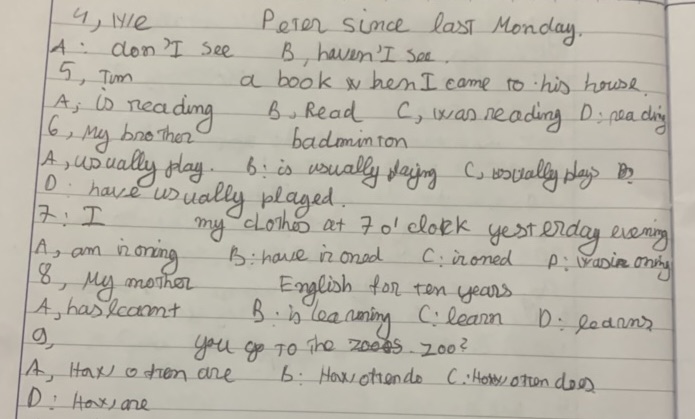 4, We Peter since last Monday.
A: don't see B, haven't see.
5, Tim a book when I came to his house.
A, is reading B, Read C, was reading D: reading
6, My brother badminton
A, usually play. B: is usually playing C, usually plays
D: have usually played.
7: I my clothes at 7 o'clock yesterday evening
A, am ironing B: have ironed C: ironed D: was ironing
8, My mother English for ten years
A, has learnt B: is learning C: learn D: learns
9, you go to the zoo?
A, How often are B: How often do C: How often does
D: How, are